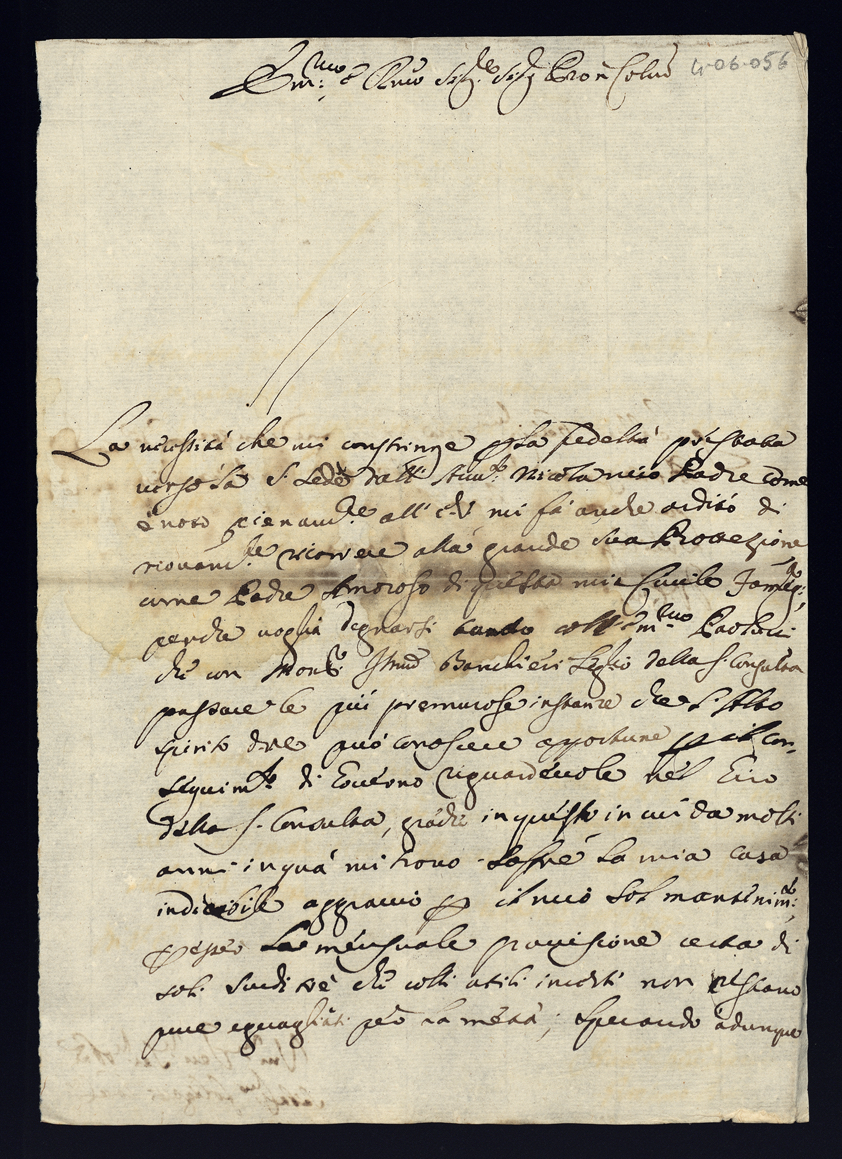 Em:mo e Rmo Sig.re Sig. Pron Colmo 4-06-056
La necessità che mi constringe p la fedeltà prestata
verso la S. Sede dall' Nicola mio Padre come
è noto pienam.te all' E.V. mi fà anche ardito di
nuovam.te ricorrere alla grande sua Protezione
come Padre Amoroso di questa mia Civile Famig.a
perche voglia degnarsi tanto coll' Em:mo Paolucci
che con Mons.r Banchieri Seg.rio della S. Consulta
passare le più premurose instanze che l'Alto
spirito d.V.E. può conoscere opportune p il con-
seguim.to di Governo riguardevole nel Giro
della S. Consulta, in questo in cui da molti
anni in quà mi trovo soffre la mia Casa
indicibile aggravio p il mio sol mantenim.to
p esser la mensuale provisione certa di
soli scudi che colli utili incerti non restano
pure eguagliati per la metà; Sperando adunque